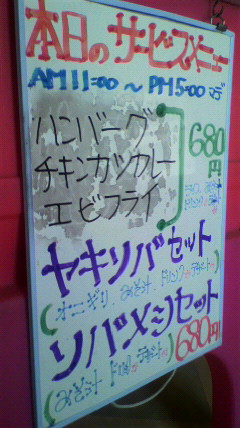 本日のサービスメニュー
AM11:00 ～ PM5:00 まで
ハンバーグ
チキンカツカレー
エビフライ
680円
ヤキソバセット
(オニギリ、みそ汁、ドリンク
ソバメシセット
(みそ汁、ドリンク
680円